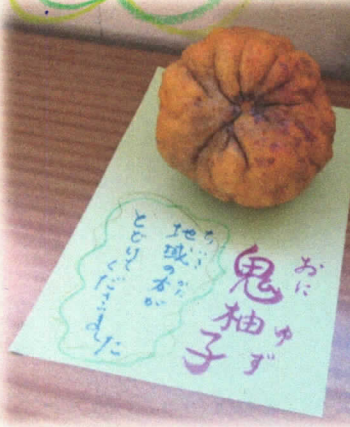 おに ゆず
鬼柚子
ちいき かた
地域の方が
とどけて
くださいました